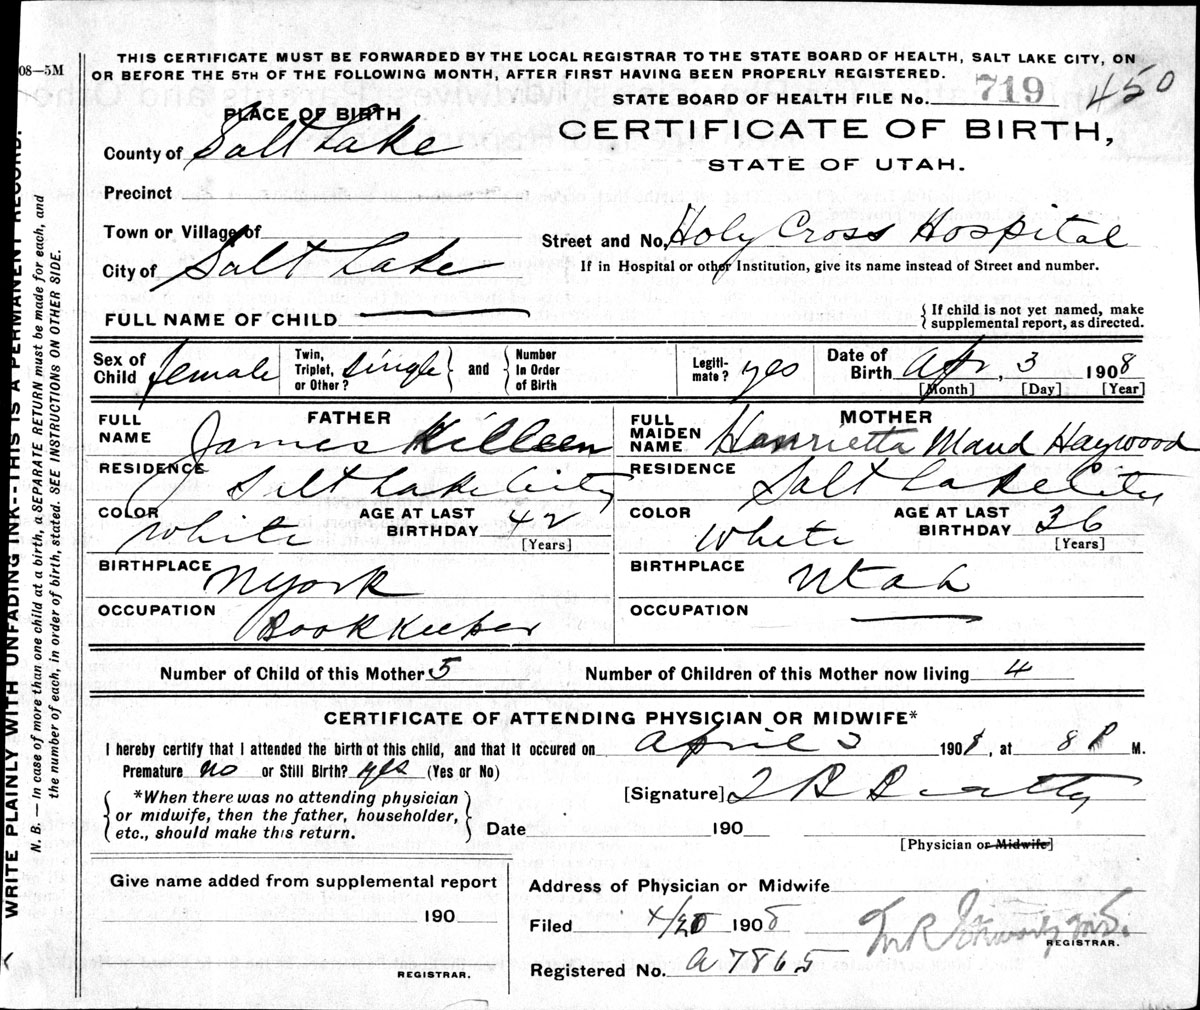 THIS CERTIFICATE MUST BE FORWARDED BY THE LOCAL REGISTRAR TO THE STATE BOARD OF HEALTH, SALT LAKE CITY, ON
OR BEFORE THE 5TH OF THE FOLLOWING MONTH, AFTER FIRST HAVING BEEN PROPERLY REGISTERED.
08—5M
STATE BOARD OF HEALTH FILE No. 719 450
PLACE OF BIRTH
CERTIFICATE OF BIRTH,
STATE OF UTAH.
County of Salt Lake
Precinct
Town or Village of
Street and No. Holy Cross Hospital
City of Salt Lake
If in Hospital or other Institution, give its name instead of Street and number.
FULL NAME OF CHILD
If child is not yet named, make
supplemental report, as directed.
Sex of Child female
Twin, Triplet, or Other? single and Number In Order of Birth
Legiti-mate? yes
Date of Birth Apr, 3 1908
[Month] [Day] [Year]
FATHER
FULL NAME James Killeen
RESIDENCE Salt Lake City
COLOR White AGE AT LAST BIRTHDAY 42
[Years]
BIRTHPLACE N York
OCCUPATION Bookkeeper
MOTHER
FULL MAIDEN NAME Henrietta Maud Haywood
RESIDENCE Salt Lake City
COLOR White AGE AT LAST BIRTHDAY 36
[Years]
BIRTHPLACE Utah
OCCUPATION
Number of Child of this Mother 5 Number of Children of this Mother now living 4
CERTIFICATE OF ATTENDING PHYSICIAN OR MIDWIFE*
I hereby certify that I attended the birth of this child, and that it occured on April 3 1908, at 8 P M.
Premature no or Still Birth? yes (Yes or No)
*When there was no attending physician
or midwife, then the father, householder,
etc., should make this return.
[Signature] T B Beatty
Date 190
[Physician or Midwife]
Give name added from supplemental report
190
REGISTRAR.
Address of Physician or Midwife
Filed 4/20 1908
REGISTRAR.
Registered No. A 7865
WRITE PLAINLY WITH UNFADING INK--THIS IS A PERMANENT RECORD.
N. B. — In case of more than one child at a birth, a SEPARATE RETURN must be made for each, and
the number of each, in order of birth, stated. SEE INSTRUCTIONS ON OTHER SIDE.